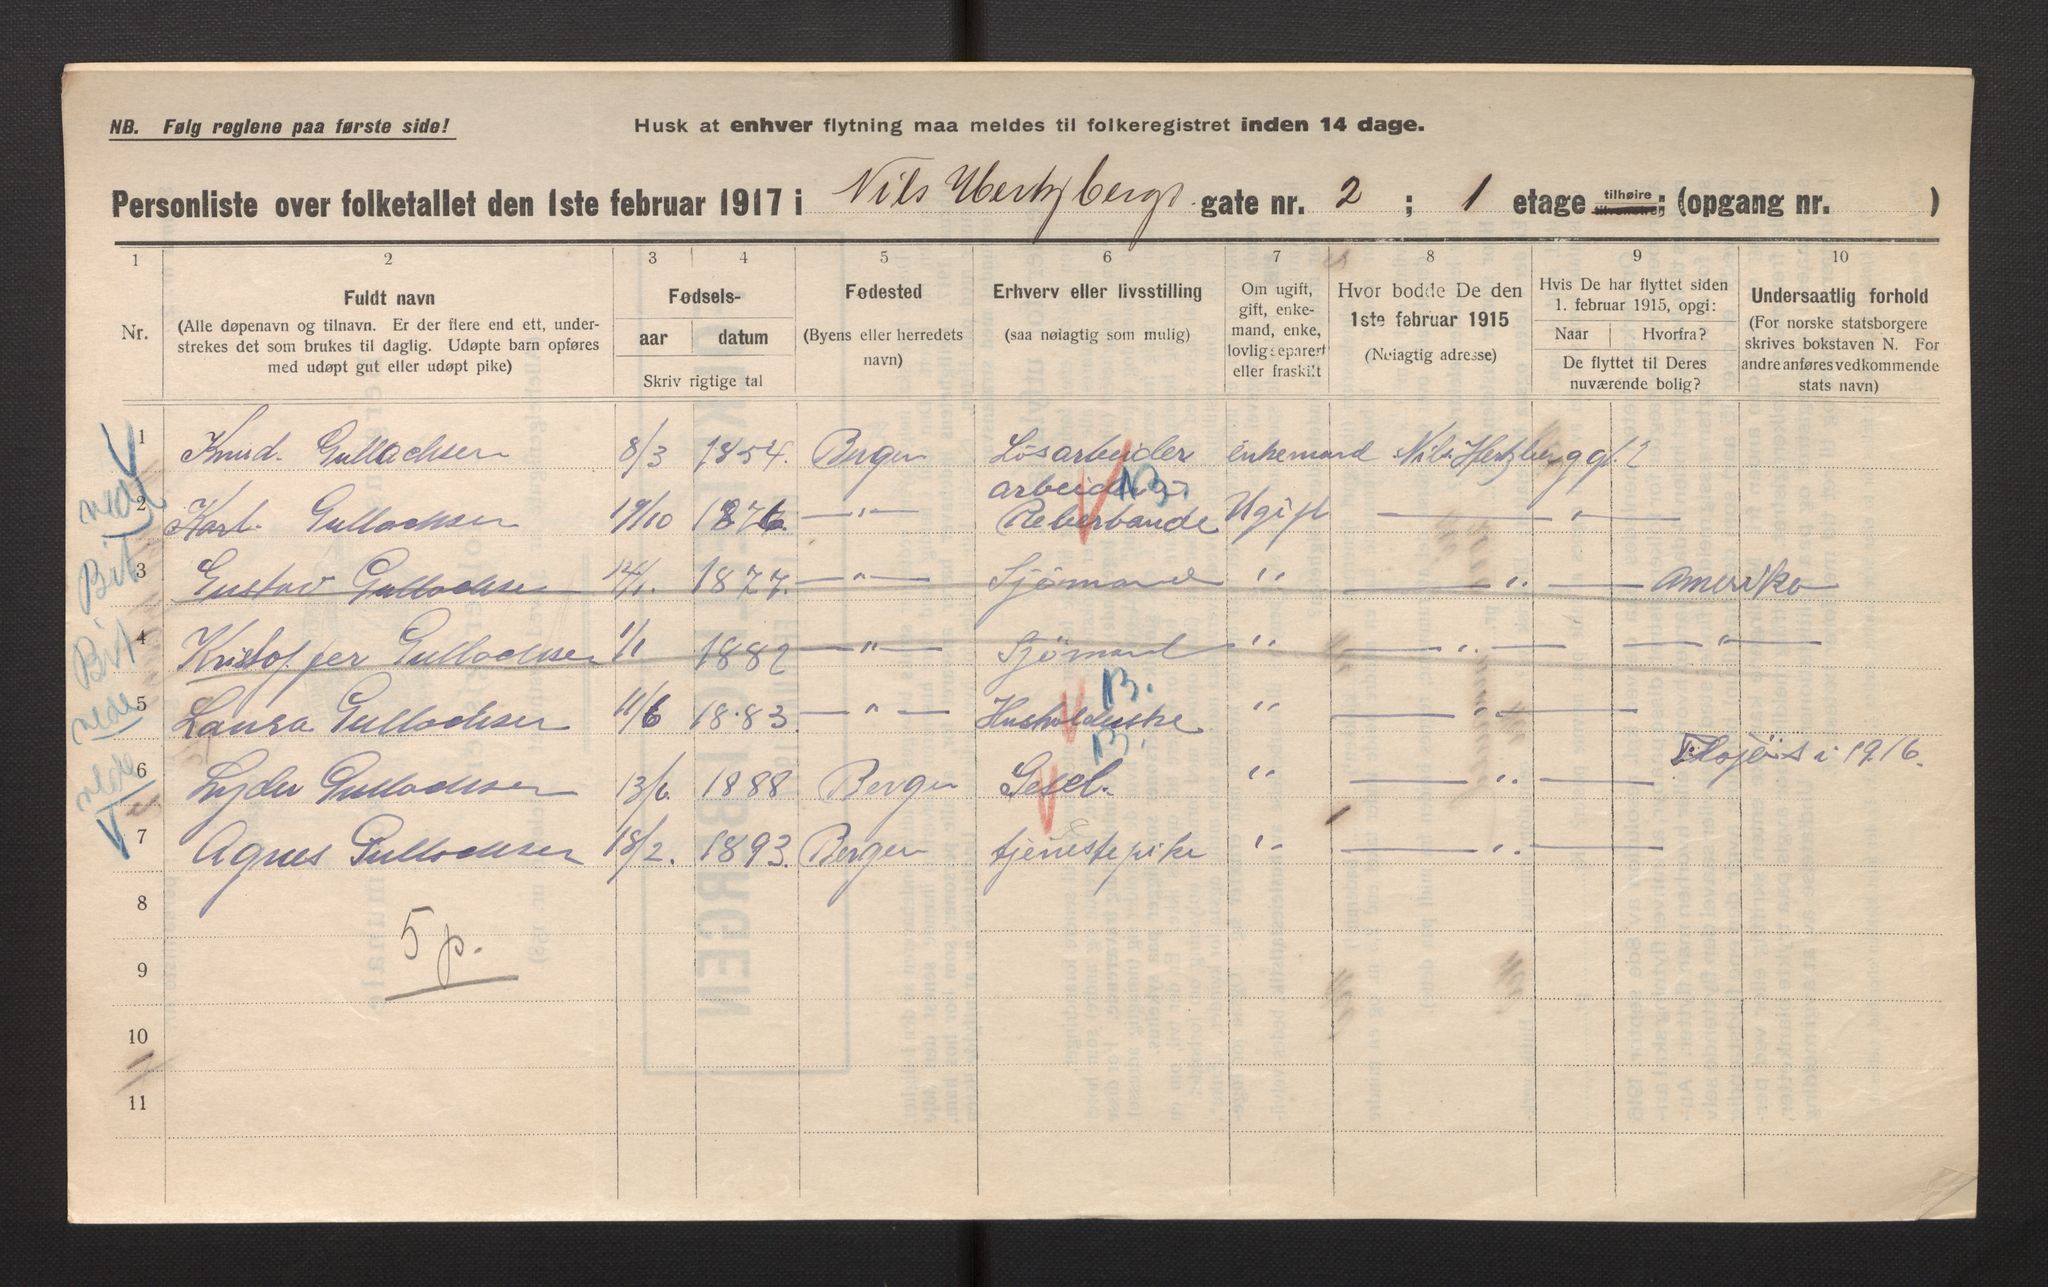 NB. Følg reglene paa første side!
Husk at enhver flytning maa meldes til folkeregistret inden 14 dage.
Personliste over folketallet den 1ste februar 1917 i Nils Hertzbergs gate nr. 2 ; 1 etage tilhøire tilvenstre; (opgang nr. )
1 2 3 4 5 6 7 8 9 10
Nr.
Fuldt navn
(Alle døpenavn og tilnavn. Er der flere end ett, under-
strekes det som brukes til daglig. Udøpte barn opføres
med udøpt gut eller udøpt pike)
Fødsels-
aar datum
Skriv rigtige tal
Fødested
(Byens eller herredets
navn)
Erhverv eller livsstilling
(saa nøiagtig som mulig)
Om ugift,
gift, enke-
mand, enke,
lovlig separert
eller fraskilt
Hvor bodde De den
1ste februar 1915
(Nøiagtig adresse)
Hvis De har flyttet siden
1. februar 1915, opgi:
Naar Hvorfra?
De flyttet til Deres
nuværende bolig?
Undersaatlig forhold
(For norske statsborgere
skrives bokstaven N. For
andre anføres vedkommende
stats navn)
1 Knud. Gullachsen 8/3 1854. Bergen Løsarbeider enkemand Nils Hertzberg gt. 2
2 Karl. Gullachsen 19/10 1876 — " — arbeider B. Reberbande Ugift — " —
3 Gustav Gullachsen 1877. — " — Sjömand " — " — Amerika
4 Kristoffer Gullachsen 1/1 1882 — " — Sjömand " — " — — " —
5 Laura Gullachsen 11/6 1883 — " — Husholderske B. " — " —
6 Lyder Gullachsen 13/6. 1888 Bergen Gesel. B. " — " — i 1916.
7 Agnes Gullachsen 18/2. 1893. Bergen tjenestepike " — " —
8
5 p.
9
10
11